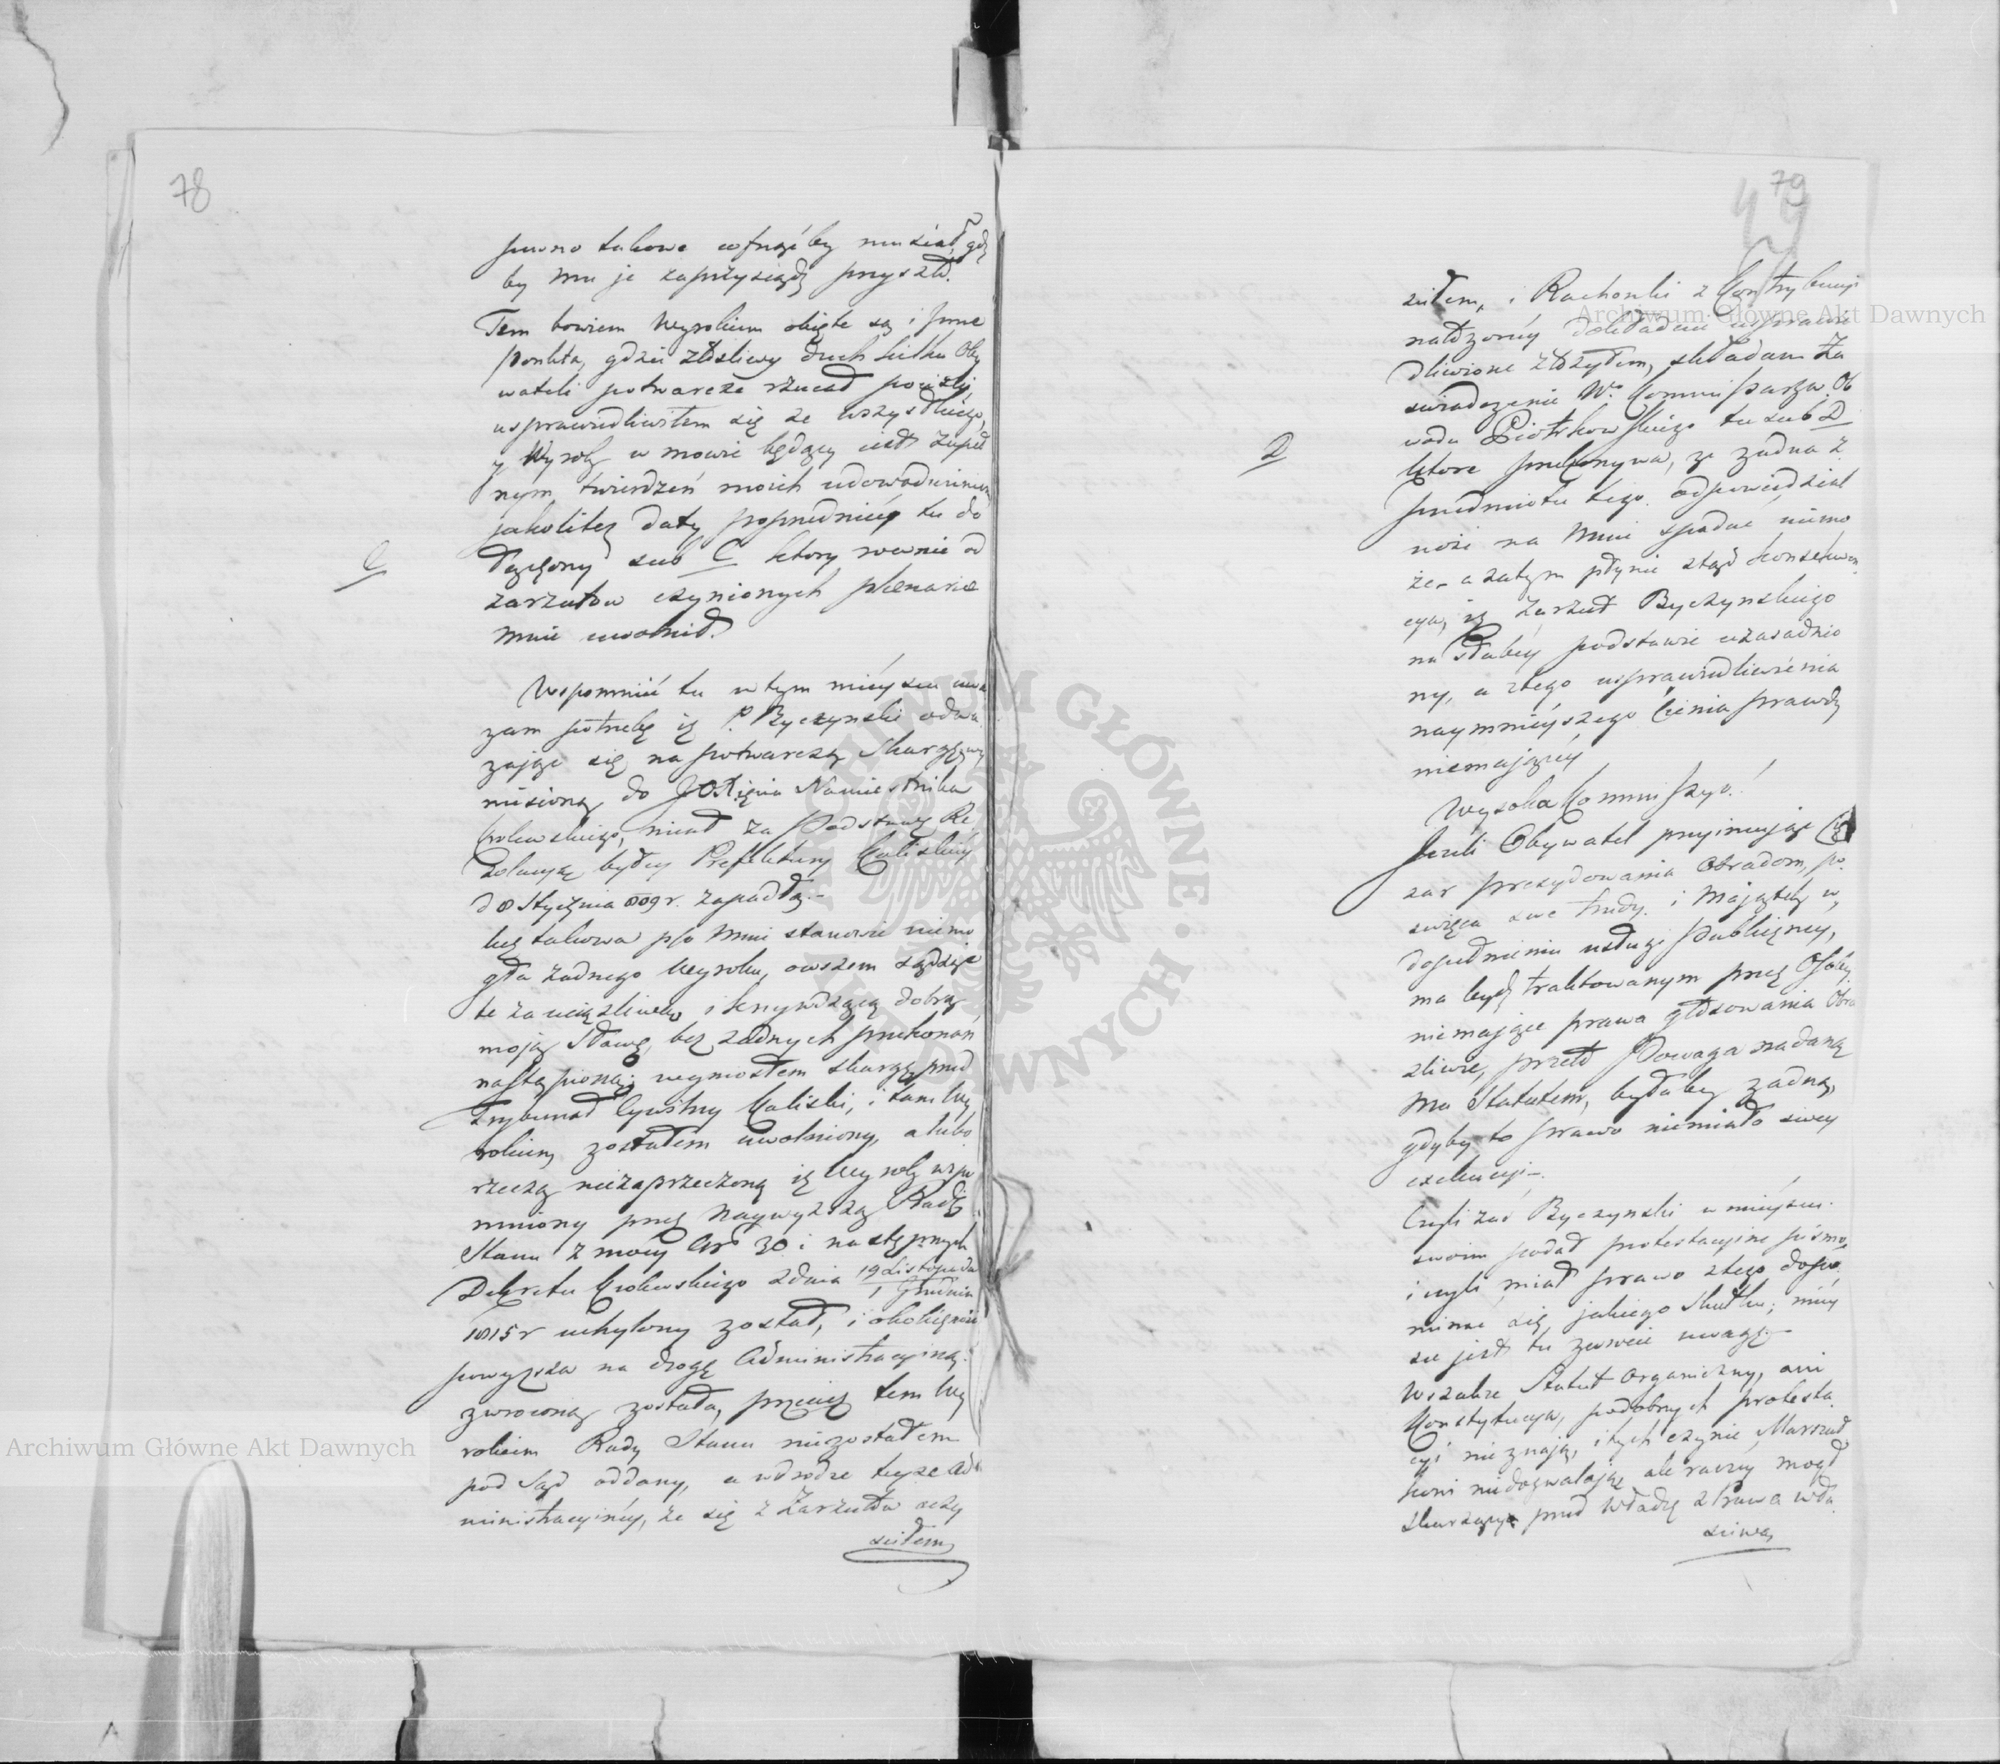 78
pewno takowe cofnąćby musiał, gdy
by mu je zaprzysiądz przyszło.
Tem bowiem Wyrokiem objęte są i jnne
Punkta, gdzie złosliwy duch kilku Oby
wateli potwarcze rzucał pociski,
usprawiedliwiłem się ze wszystkiego,
y Wyrok w mowie będący jest zupeł
nym twierdzeń moich udowodnieniem,
jakolitez daty poprzedniey tu do
łączony sub C ktory rownie od
C
zarzutow czynionych plenarie
mnie uwolnił.
Wspomnieć tu w tym mieyscu uwa
zam potrzebę iż P. Byczynski odwa
zając się na potwarczą Skargę wy
niesioną do JOXięcia Namiestnika
Krolewskiego, miał za Podstawę Re
zolucyę byłey Prefektury Kaliskiey
d 8 Stycznia 809 r. zapadłą.-
lecz takowa p/o mnie stanowić niemo
gła żadnego Wyroku, owszem sądząc
te za uciążliwą i krzywdzącą dobrą
moją Sławę, bez zadnych przekonań
nastąpioną; wyniosłem skargę przed
Trybunał Cywilny Kaliski, i tam Wy
rokiem zostałem uwolniony, a lubo
rzeczą niezaprzeczoną iż Wyrok wspo
mniony przez Naywyższą Radę
Stanu z mocy Art 30 i następnych
Dekretu Krolewskiego z dnia 19 Listopada
1 Grudnia
1815 r uchylony został, i okoliczność
powyższa na drogę Administracyiną
zwrocona została, przecież tem Wy
rokiem Rady Stanu niezostałem
pod Sąd oddany, a w drodze teyze Ad
ministracyiney, że się z Zarzutow oczy
sciłem
79
sciłem, i Rachonki z Kontrybucyi
nałdzoney dokładnie usprawie
dliwione złożyłem, składam Za
swiadczenie Wo Kommissarza Ob
wodu Piotrkowskiego tu sub D
D
ktore przekonywa, ze zadna z
przedmiotu tego odpowiedzial
ność na mnie spadać niemo
że - a zatym płynie ztąd konsekwen
cya, iz Zarzut Byczynskiego
na słabey podstawie uzasadnio
ny, a ztego usprawiedliwienia
naymnieyszego Cienia prawdy
niemaiącey
Wysoka Kommissyo!
Jeżeli Obywatel przyimując Cię
zar prezydowania Obradom, po
swięca swe trudy i Majątek w
dopełnieniu usługi Publiczney,
ma być traktowanym przez Osoby
niemające prawa głosowania Obra
zliwie, przeto Powaga nadana
Mu Statutem, byłaby zadną,
gdyby to prawo niemiało swey
exekucyi -.
Czyli zaś Byczynski w mieyscu
swoim podał protestacyine pismo,
i czyli miał prawo ztego dopo
minać się jakiego Skutku; miey
sce jest tu zwrocić uwagę -
Wszakze Statut Organiczny, ani
Konstytucya, podobnych protesta
cyi nie znają, i tych czynić Marszał
kowi niedozwalają, ale raczey mogł
skarzący przed Władzę z Prawa wła
sciwą,